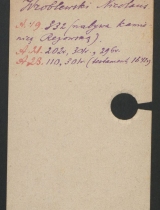 Wroblewski Nicolaus
A. 49. 832 (nabywa kamie
nicę Rezowską).
A. 21. 202v. 30v., 296v.
A. 23. 110. 301v (testament 1641)